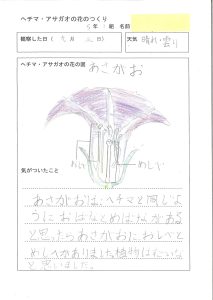 ヘチマ・アサガオの花のつくり
5年 組 名前
観察した日（ 月 日） 天気 晴れ・曇り
ヘチマ・アサガオの花の図
あさがお
おしべ めしべ
気がついたこと
あさがおは、ヘチマと同じよ
うにおばなとめばながある
と思ったらあさがおにおしべと
めしべがありました。植物は
と思いました。